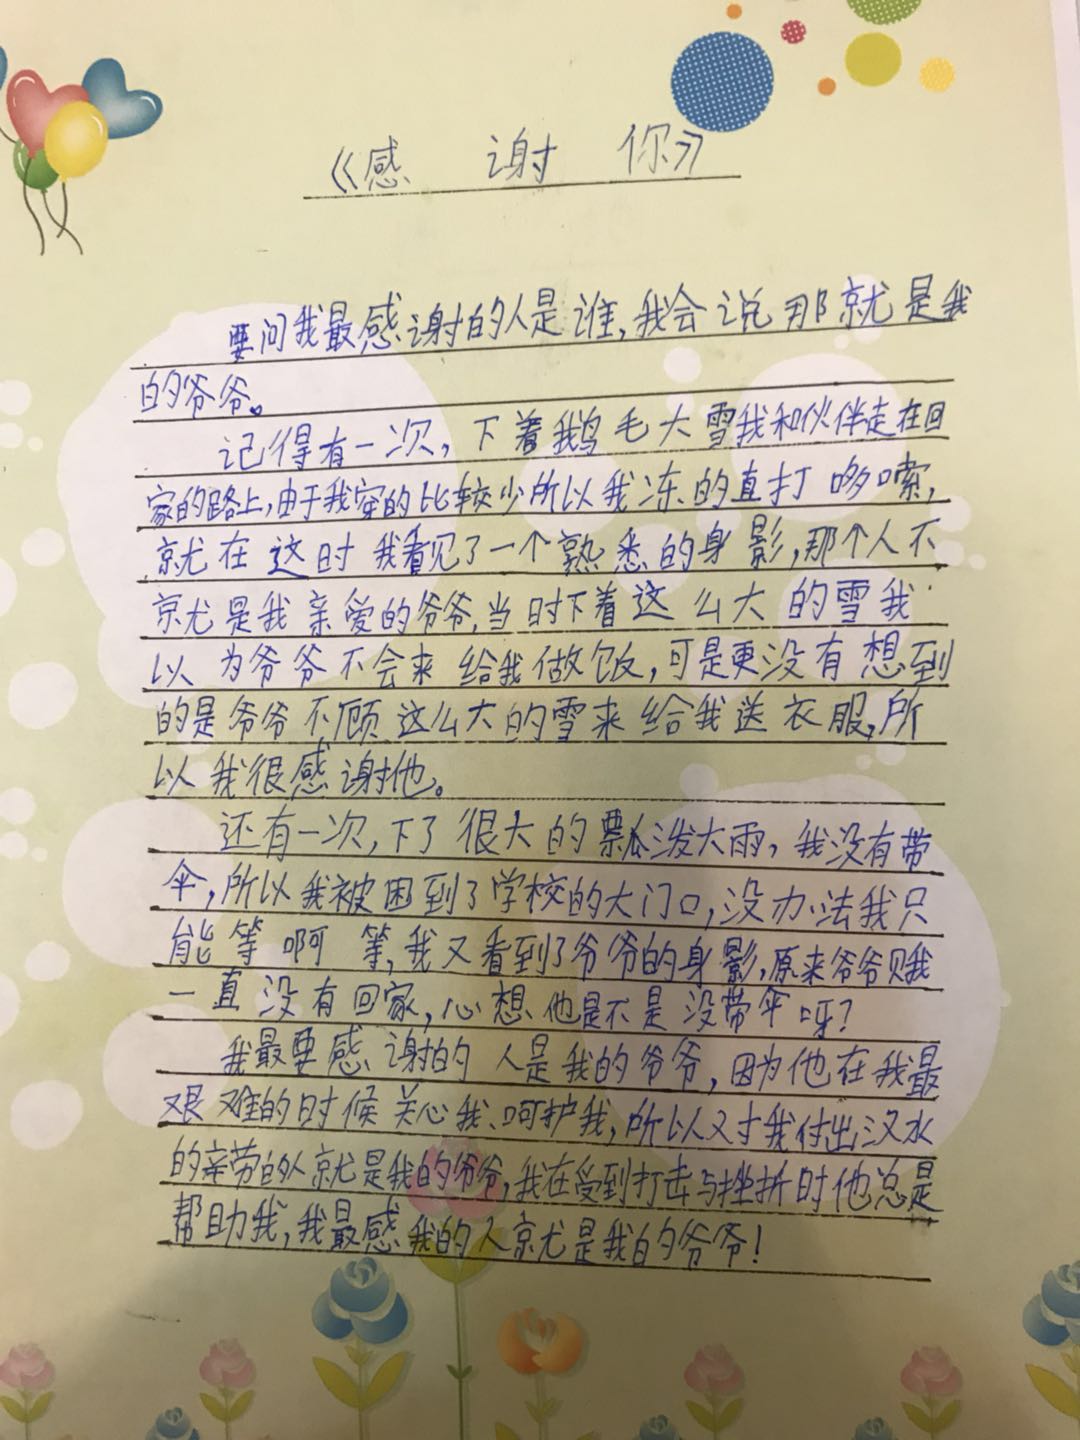 《感谢你》
要问我最感谢的人是谁,我会说那就是我
的爷爷。
记得有一次,下着鹅毛大雪我和伙伴走在回
家的路上,由于我穿的比较少所以我冻的直打哆嗦,
就在这时我看见了一个熟悉的身影,那个人不
就是我亲爱的爷爷,当时下着这么大的雪我
以为爷爷不会来给我做饭,可是更没有想到
的是爷爷不顾这么大的雪来给我送衣服,所
以我很感谢他。
还有一次,下了很大的瓢泼大雨,我没有带
伞,所以我被困到了学校的大门口,没办法我只
能等啊等,我又看到了爷爷的身影,原来爷爷见我
一直没有回家,心想他是不是没带伞呀?
我最要感谢的人是我的爷爷,因为他在我最
艰难的时候关心我、呵护我,所以对我付出汉水
的亲劳的人就是我的爷爷,我在受到打击与挫折时他总是
帮助我,我最感我的人就是我的爷爷!